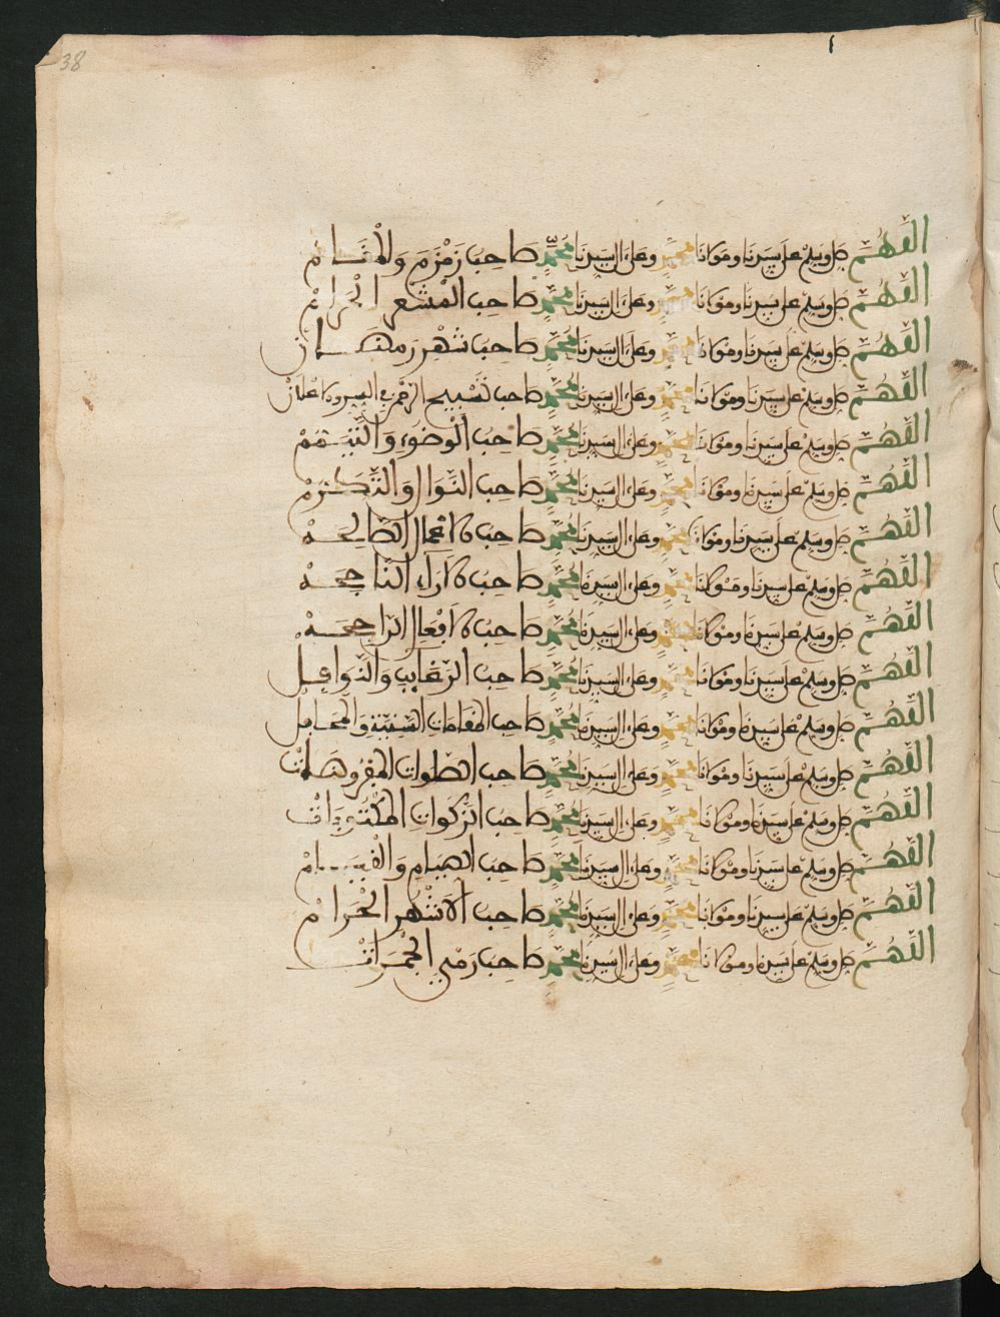 38
اللهم صل وسلم على سيدنا ومولانا محمد وعلى ال سيدنا محمد صاحب زمزم والمقام
اللهم صل وسلم على سيدنا ومولانا محمد وعلى ال سيدنا محمد صاحب المشعر الحرام
اللهم صل وسلم على سيدنا ومولانا محمد وعلى ال سيدنا محمد صاحب شهر رمضان
اللهم صل وسلم على سيدنا ومولانا محمد وعلى ال سيدنا محمد صاحب تسبيح الرحمن في السر والاعلان
اللهم صل وسلم على سيدنا ومولانا محمد وعلى ال سيدنا محمد صاحب الوضوء والتيمم
اللهم صل وسلم على سيدنا ومولانا محمد وعلى ال سيدنا محمد صاحب النوال والتكرم
اللهم صل وسلم على سيدنا ومولانا محمد وعلى ال سيدنا محمد صاحب الاعمال الصالحه
اللهم صل وسلم على سيدنا ومولانا محمد وعلى ال سيدنا محمد صاحب الاراء الناجحه
اللهم صل وسلم على سيدنا ومولانا محمد وعلى ال سيدنا محمد صاحب الافعال الراجحه
اللهم صل وسلم على سيدنا ومولانا محمد وعلى ال سيدنا محمد صاحب الرغايب والنوافل
اللهم صل وسلم على سيدنا ومولانا محمد وعلى ال سيدنا محمد صاحب المقامات السنية والمحافل
اللهم صل وسلم على سيدنا ومولانا محمد وعلى ال سيدنا محمد صاحب الصلوات المفروضات
اللهم صل وسلم على سيدنا ومولانا محمد وعلى ال سيدنا محمد صاحب الزكوات المكتوبات
اللهم صل وسلم على سيدنا ومولانا محمد وعلى ال سيدنا محمد صاحب الصيام والقيام
اللهم صل وسلم على سيدنا ومولانا محمد وعلى ال سيدنا محمد صاحب الاشهر الحرام
اللهم صل وسلم على سيدنا ومولانا محمد وعلى ال سيدنا محمد صاحب رمي الجمرات